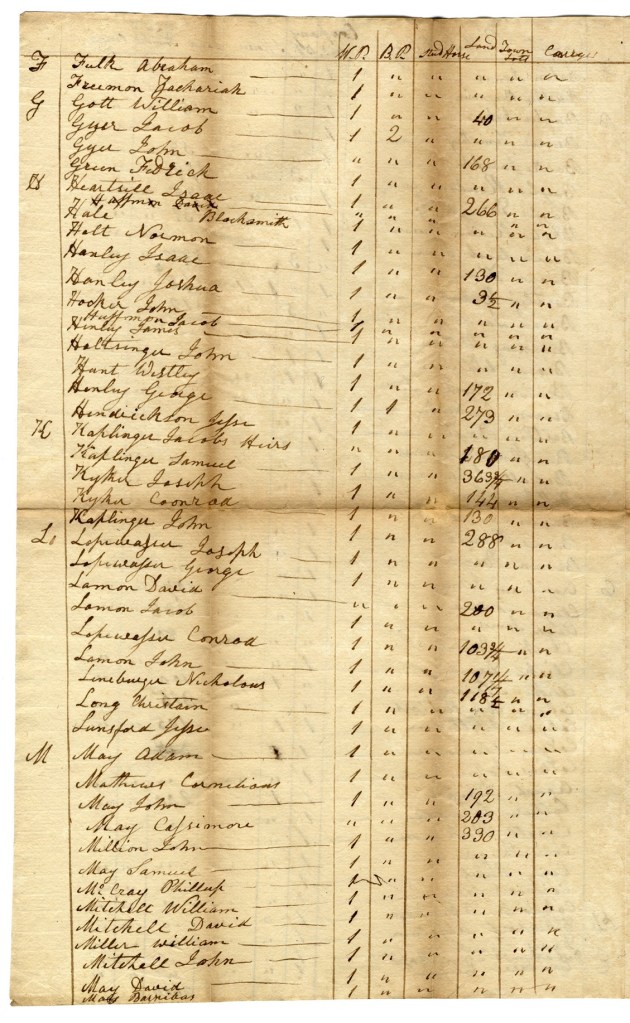 W.P. B.P. Stud Horse Land Town Lott Carriges
F Fulk Abraham 1 " " " " "
Freemon Zachariah 1 " " " " "
G Gott William 1 " " 40 " "
Gyer Jacob 1 2 " " " "
Gyer John " " " 168 " "
Green Fedrick 1 " " " " "
H Heartsill Isaac 1 " " 266 " "
Huffmon David " " " " " "
Hale Blacksmith 1 " " " " "
Holt Normon 1 " " " " "
Hanley Isaac 1 " " 130 " "
Hanley Joshua 1 " " 3½ " "
Hooker John 1 " " " " "
Huffmon Jacob 1 " " " " "
Henley James 1 " " " " "
Holtsinger John 1 " " " " "
Hunt Westley 1 " " 172 " "
Henley George 1 1 " 273 " "
Hendrickson Jesse 1 " " " " "
K Kaplinger Jacobs Heirs " " " 180 " "
Kaplinger Samuel 1 " " 363¾ " "
Kyker Joseph 1 " " 144 " "
Kyker Coonrod 1 " " 130 " "
Kaplinger John 1 " " 288 " "
L Lopewasser Joseph 1 " " " " "
Lopewasser George 1 " " " " "
Lamon David " " " 200 " "
Lamon Jacob 1 " " " " "
Lopewasser Conrod 1 " " 103¾ " "
Lamon John 1 " " 107¼ " "
Lineburger Nicholous 1 " " 118½ " "
Long Christain 1 " " " " "
Lunsford Jesse 1 " " " " "
M May Adam 1 " " " " "
Mathews Cornelious 1 " " " " "
May John 1 " " 192 " "
May Cassimore " " " 203 " "
Million John 1 " " 330 " "
May Samuel 1 " " " " "
McCray Phillup 1 " " " " "
Mitchell William 1 " " " " "
Mitchell David 1 " " " " "
Miller William 1 " " " " "
Mitchell John 1 " " " " "
May David 1 " " " " "
May Barnibas 1 " " " " "